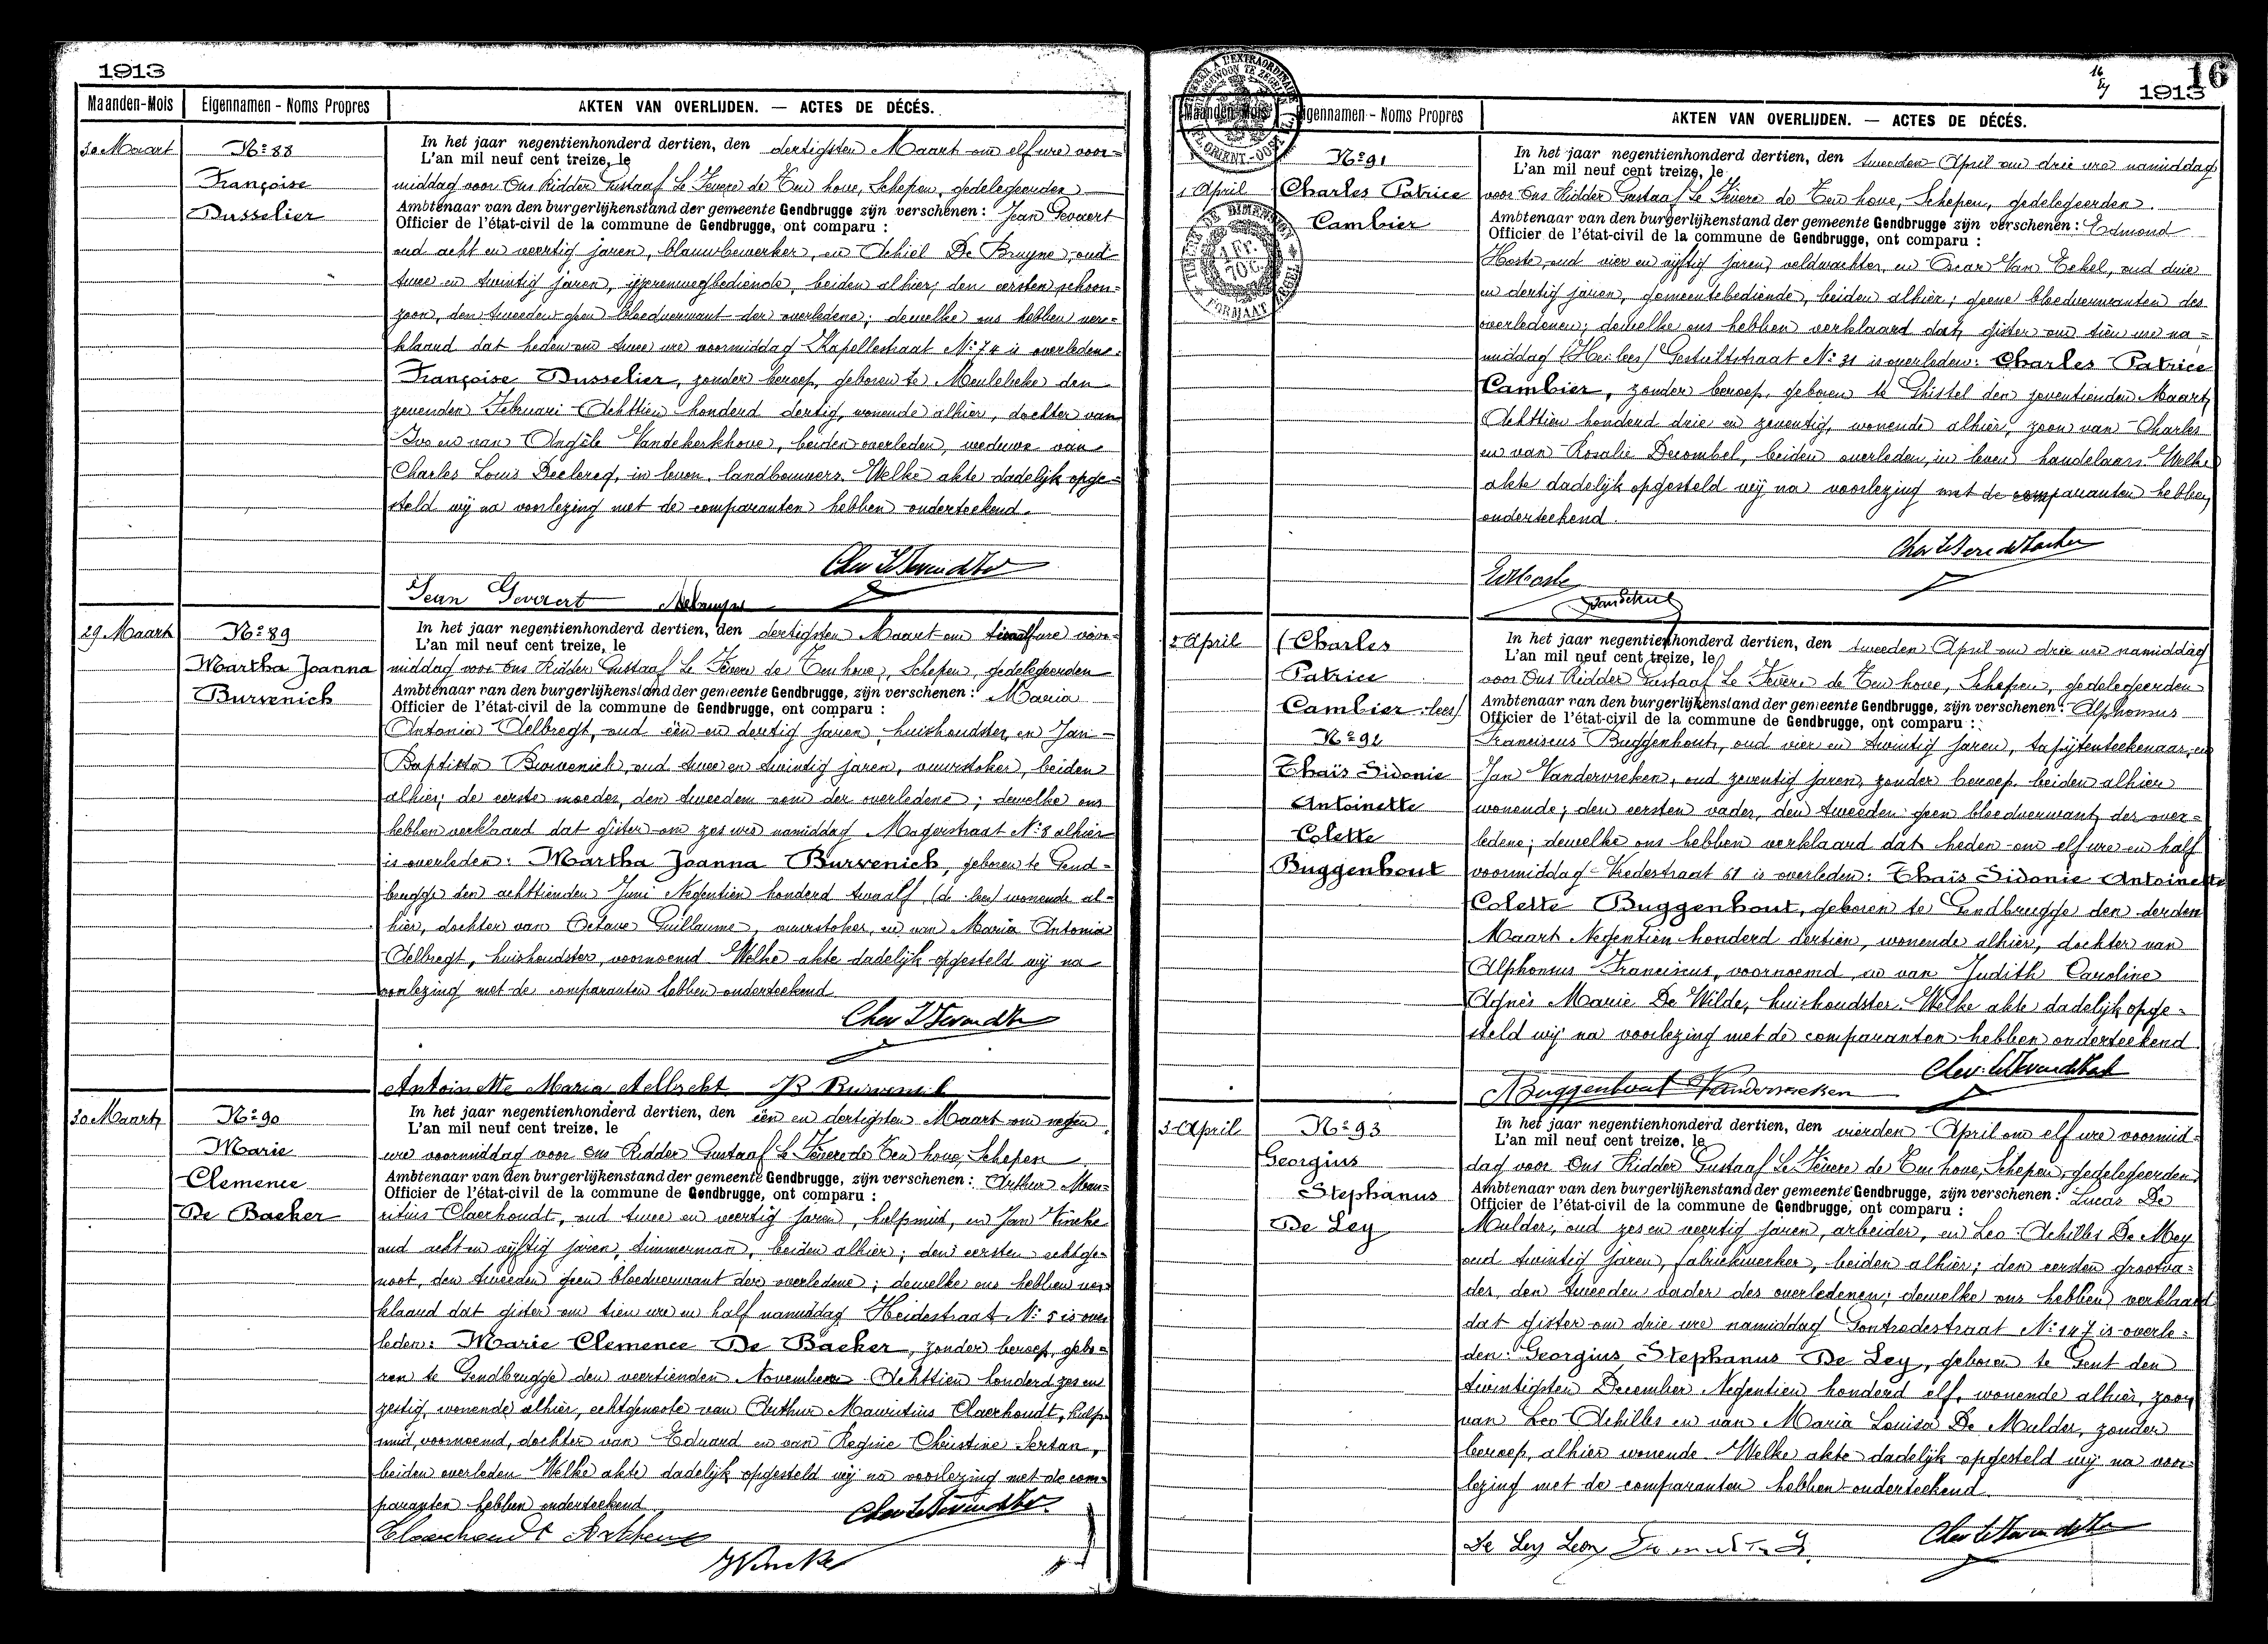 1913
Maanden-Mois Eigennamen - Noms Propres AKTEN VAN OVERLIJDEN. — ACTES DE DÉCÉS.
30 Maart
Nº 88
Françoise
Dusselier
In het jaar negentienhonderd dertien, den dertigsten Maart om elf ure voor=
L'an mil neuf cent treize, le
middag voor Ons Ridder Gustaaf Le Fevere de Ten hove, Schepen, gedelegeerden
Ambtenaar van den burgerlijkenstand der gemeente Gendbrugge zijn verschenen : Jean Gevaert
Officier de l'état-civil de la commune de Gendbrugge, ont comparu :
oud acht en veertig jaren, blauwbewerker, en Achiel De Bruyne, oud
twee en twintig jaren, ijzerenwegbediende, beiden alhier; den eersten schoon=
zoon, den tweeden geen bloedverwant der overledene; dewelke ons hebben ver=
klaard dat heden om twee ure voormiddag Kapellestraat Nº 74 is overleden:
Françoise Dusselier, zonder beroep, geboren te Meulebeke den
zevenden Februari Achttien honderd dertig, wonende alhier, dochter van
Ivo en van Angèle Vandekerkhove, beiden overleden, weduwe van
Charles Louis Declercq, in leven landbouwers. Welke akte dadelijk opge=
steld wij na voorlezing met de comparanten hebben onderteekend.
Jean Gevaert
29 Maart
Nº 89
Martha Joanna
Burvenich
In het jaar negentienhonderd dertien, den dertigsten Maart om twaalf ure voor=
L'an mil neuf cent treize, le
middag voor Ons Ridder Gustaaf Le Fevere de Ten hove, Schepen, gedelegeerden
Ambtenaar van den burgerlijkenstand der gemeente Gendbrugge, zijn verschenen : Maria
Officier de l'état-civil de la commune de Gendbrugge, ont comparu :
Antonia Aelbregt, oud één en dertig jaren, huishoudster, en Jan
Baptista Burvenich, oud twee en twintig jaren, vuurstoker, beiden
alhier; de eerste moeder, den tweeden oom der overledene; dewelke ons
hebben verklaard dat gister om zes ure namiddag Magerstraat Nº 8 alhier
is overleden: Martha Joanna Burvenich, geboren te Gend=
brugge den achttienden Juni Negentien honderd twaalf, (de lees) wonende al=
hier, dochter van Octave Guillaume, vuurstoker, en van Maria Antonia
Aelbregt, huishoudster, voornoemd. Welke akte dadelijk opgesteld wij na
voorlezing met de comparanten hebben onderteekend.
Antoinette Maria Aelbrecht JB Burvenich
30 Maart
Nº 90
Marie
Clemence
De Backer
In het jaar negentienhonderd dertien, den één en dertigsten Maart om negen
L'an mil neuf cent treize, le
ure voormiddag voor Ons Ridder Gustaaf Le Fevere de Ten hove, Schepen
Ambtenaar van den burgerlijkenstand der gemeente Gendbrugge, zijn verschenen : Arthur Mau=
Officier de l'état-civil de la commune de Gendbrugge, ont comparu :
ritius Claerhoudt, oud twee en veertig jaren, hulpsmid, en Jan Vincke
oud acht en vijftig jaren, timmerman, beiden alhier; den eersten echtge=
noot, den tweeden geen bloedverwant der overledene; dewelke ons hebben ver=
klaard dat gister om tien ure en half namiddag Heidestraat Nº 5 is over
leden: Marie Clemence De Backer, zonder beroep, gebo=
ren te Gendbrugge den veertienden November Achttien honderd zes en
zestig, wonende alhier, echtgenoote van Arthur Mauritius Claerhoudt, hulp=
smid, voornoemd, dochter van Eduard en van Regine Christine Sertan,
beiden overleden. Welke akte dadelijk opgesteld wij na voorlezing met de com=
paranten hebben onderteekend
Claerhoudt Arthur
J Vincke
16
1913
Maanden-Mois Eigennamen - Noms Propres AKTEN VAN OVERLIJDEN. — ACTES DE DÉCÉS.
1 April
Nº 91
Charles Patrice
Cambier
In het jaar negentienhonderd dertien, den tweeden April om drie ure namiddag
L'an mil neuf cent treize, le
voor Ons Ridder Gustaaf Le Fevere de Ten hove, Schepen, gedelegeerden.
Ambtenaar van den burgerlijkenstand der gemeente Gendbrugge zijn verschenen : Edmond
Officier de l'état-civil de la commune de Gendbrugge, ont comparu :
Hoste, oud vier en vijftig jaren, veldwachter, en Oscar Van Eekel, oud drie
en dertig jaren, gemeentebediende, beiden alhier; geene bloedverwanten des
overledenen; dewelke ons hebben verklaard dat gister om tien ure na=
middag Gestichtstraat Nº 31 is overleden: Charles Patrice
Cambier, zonder beroep, geboren te Ghistel den zeventienden Maart
Achttien honderd drie en zeventig, wonende alhier, zoon van Charles
en van Rosalie Decombel, beiden overleden, in leven handelaars. Welke
akte dadelijk opgesteld wij na voorlezing met de comparanten hebben
onderteekend.
EdHoste
2 April
(Charles
Patrice
Cambier lees)
Nº 92
Thaïs Sidonie
Antoinette
Colette
Buggenhout
In het jaar negentienhonderd dertien, den tweeden April om drie ure namiddag
L'an mil neuf cent treize, le
voor Ons Ridder Gustaaf Le Fevere de Ten hove, Schepen, gedelegeerden
Ambtenaar van den burgerlijkenstand der gemeente Gendbrugge, zijn verschenen : Alphonsus
Officier de l'état-civil de la commune de Gendbrugge, ont comparu :
Franciscus Buggenhout, oud vier en twintig jaren, tapijtenteekenaar, en
Jan Vandervreken, oud zeventig jaren, zonder beroep, beiden alhier
wonende; den eersten vader, den tweeden geen bloedverwant der over=
ledene; dewelke ons hebben verklaard dat heden om elf ure en half
voormiddag Vredestraat 61 is overleden: Thaïs Sidonie Antoinette
Colette Buggenhout, geboren te Gendbrugge den derden
Maart Negentien honderd dertien, wonende alhier, dochter van
Alphonsus Franciscus, voornoemd, en van Judith Caroline
Agnès Marie De Wilde, huishoudster. Welke akte dadelijk opge=
steld wij na voorlezing met de comparanten hebben onderteekend
ABuggenhout Vandervreken
3 April
Nº 93
Georgius
Stephanus
De Ley
In het jaar negentienhonderd dertien, den vierden April om elf ure voormid=
L'an mil neuf cent treize, le
dag voor Ons Ridder Gustaaf Le Fevere de Ten hove, Schepen, gedelegeerden
Ambtenaar van den burgerlijkenstand der gemeente Gendbrugge, zijn verschenen : Lucas De
Officier de l'état-civil de la commune de Gendbrugge, ont comparu :
Mulder, oud zes en veertig jaren, arbeider, en Leo Achilles De Mey
oud twintig jaren, fabriekwerker, beiden alhier; den eersten grootva=
der, den tweeden vader des overledenen; dewelke ons hebben verklaard
dat gister om drie ure namiddag Gontrodestraat Nº 147 is overle=
den: Georgius Stephanus De Ley, geboren te Gent den
twintigsten December Negentien honderd elf, wonende alhier, zoon
van Leo Achilles en van Maria Louisa De Mulder, zonder
beroep, alhier wonende. Welke akte dadelijk opgesteld wij na voor=
lezing met de comparanten hebben onderteekend.
De Ley Leon